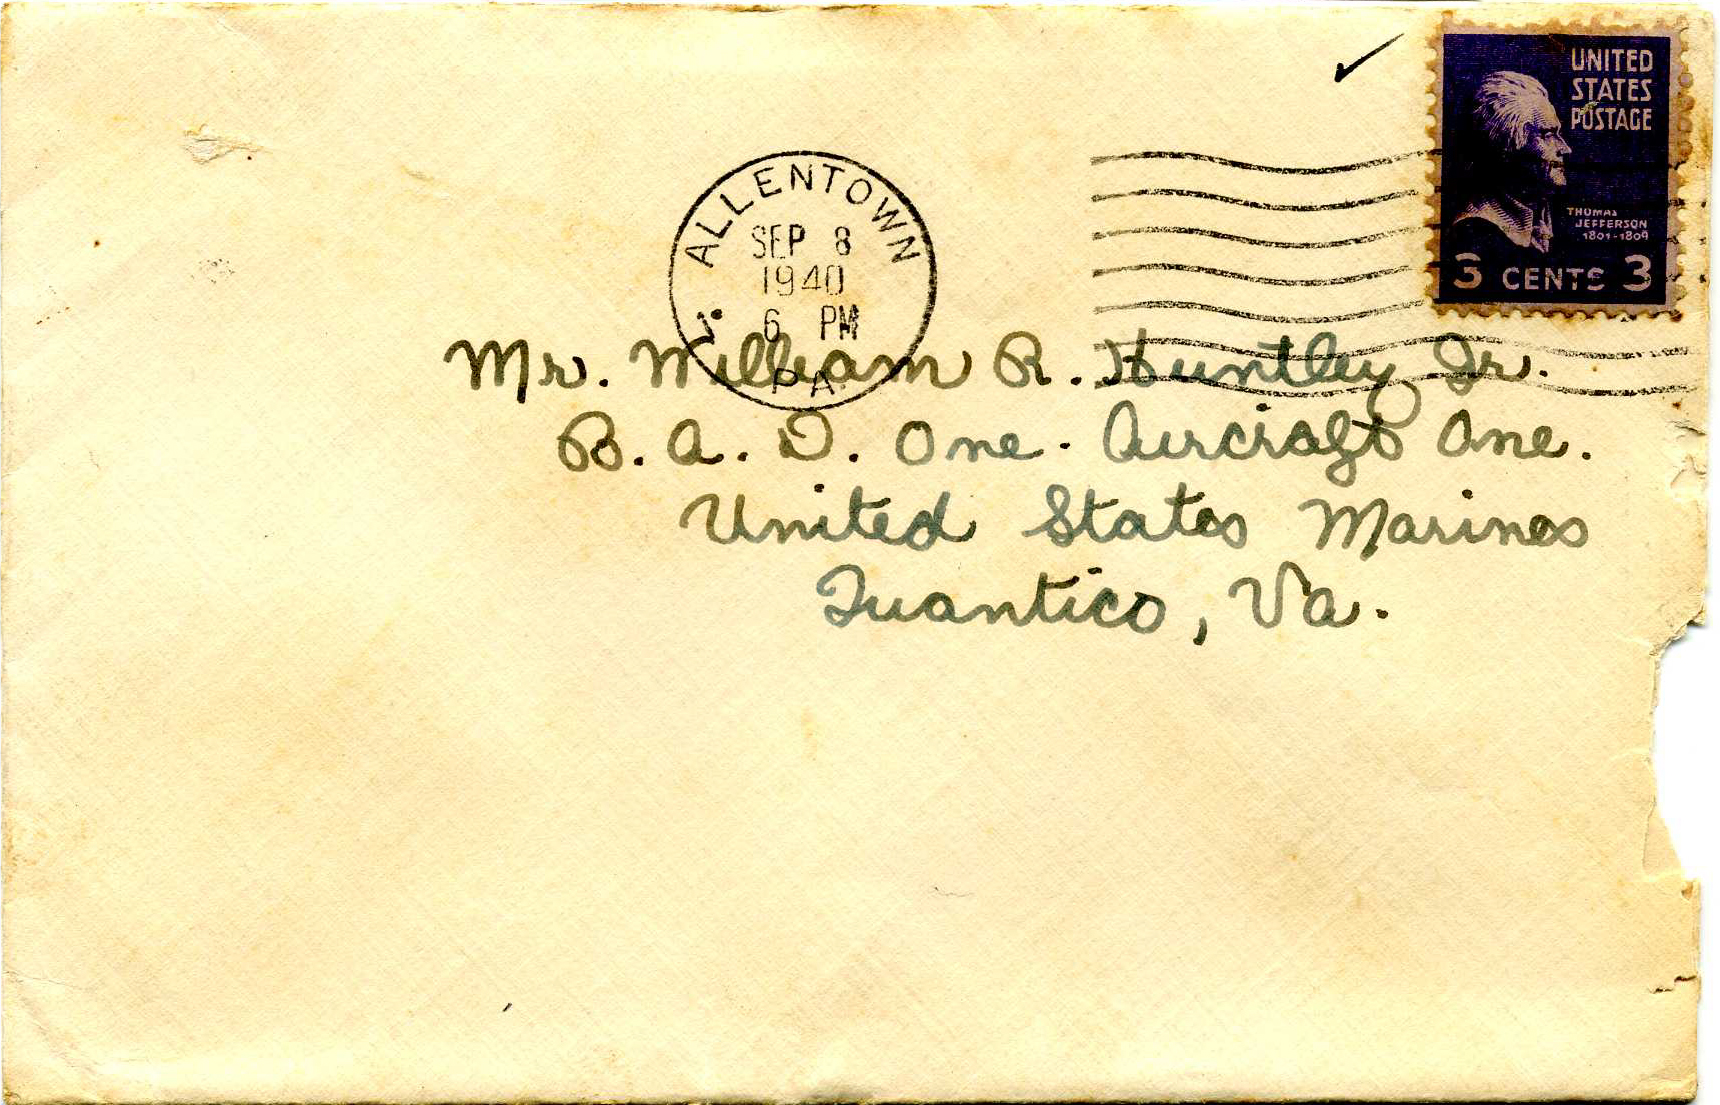 UNITED
STATES
POSTAGE
THOMAS
JEFFERSON
1801-1809
3 CENTS 3
ALLENTOWN
SEP 8
1940
6 PM
PA.
Mr. William R. Huntley Jr.
B. A. D. One. Aircraft One.
United States Marines
Quantico, Va.